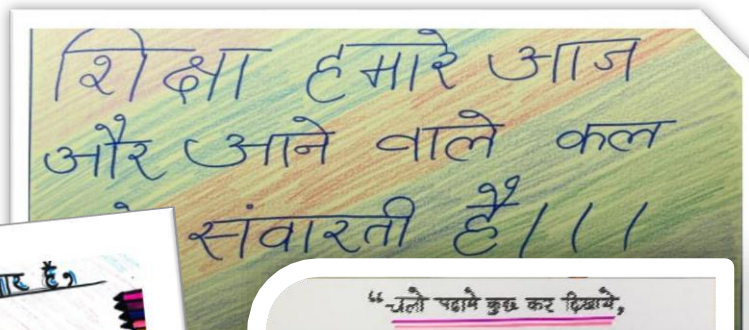 शिक्षा हमारे आज
और आने वाले कल
संवारती है।।।
हैं,
"चलो पढाये कुछ कर दिखाये,